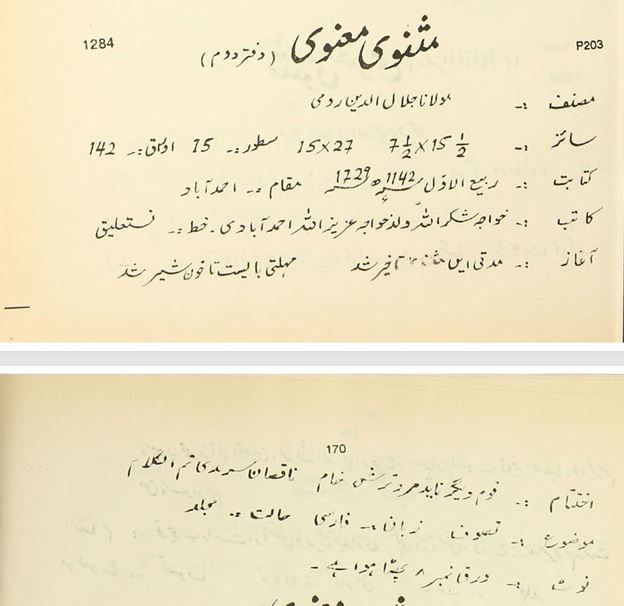 P203 مثنوی معنوی (دفتر دوم) 1284
مصنف :۔ مولانا جلال الدین رومی
سائز :۔ 7½ X 15½ 15 X 27 سطور :۔ 15 اوراق :۔ 142
کتابت :۔ ربیع الاول 1142ھ 1729ء مقام :۔ احمد آباد
کاتب :۔ خواجہ شکر اللہ ولد خواجہ عزیز اللہ احمد آبادی ۔ خط :۔ نستعلیق
آغاز :۔ مدتی این مثنوی تاخیر شد مہلتی بایست تا خون شیر شد
170
اختتام :۔ قوم دیگر ناپذیر ترش خام ناقصان سرمدی تم الکلام
موضوع :۔ تصوف زبان :۔ فارسی حالت :۔ مجلد
نوٹ :۔ ورق نمبر ۸ پھٹا ہوا ہے ۔